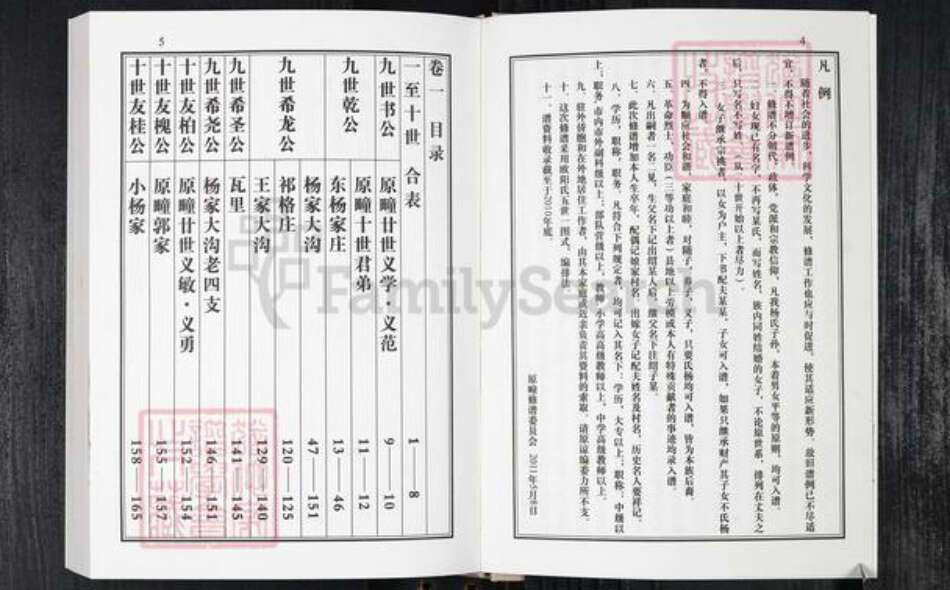 4
凡 例
随着社会的进步,科学文化的发展,修谱工作也应与时促进,使其适应新形势,故旧谱例已不尽适
宜,不得不增订新谱例。
一、修谱不分朝代,政体,党派和宗教信仰,凡我杨氏子孙,本着男女平等的原则,均可入谱。
妇女现已有名字,不再写某氏,而写姓名,族内同姓结婚的女子,不论原世系,排列在丈夫之
后,只写名不写姓(从二十世开始以上者尽力)
女子继承宗祧者,以女为户主,下书配夫某某,子女可入谱,如果只继承财产其子女不氏杨
者,不得入谱。
四、为顺应社会和谐,家庭和睦,对随子,养子,义子,只要氏杨均可入谱,皆为本族后裔。
五、革命烈士,功臣(三等功以上者)县地以上劳模或本人有特殊贡献者的事迹均录入谱。
六、凡出嗣者一名二见,生父名下记出绍某人后,继父名下注绍子某。
七、此次修谱增加本人生卒年,配偶记娘家村名,出嫁女子记配夫姓名及村名,历史名人要祥记。
八、学历,职称,职务,凡符合下列规定者,均可记入其名下:学历,大专以上;职称,中级以
上;职务,市内市外副科级以上;部队营级以上,教师,小学高级教师以上,中学高级教师以上。
九、驻外侨胞和在外地居住工作者,由其本家庭或近亲负责其资料的索取,请原谅编委力所不支。
十、这次修谱采用欧阳氏五世一图式,编排法。
十一、谱资料收录截至于2010年底。
原疃修谱委员会 2011年5月8日
5
卷一 目录
一至十世 合表 1—8
九世书公 原疃廿世义学·义范 9—10
九世乾公 原疃十世君弟 11—12
东杨家庄 13—46
九世希龙公 杨家大沟 47—151
祁格庄 120—125
王家大沟 129—140
九世希圣公 瓦里 141—145
九世希尧公 杨家大沟老四支 146—151
十世友柏公 原疃廿世义敏·义勇 152—154
十世友槐公 原疃郭家 155—157
十世友桂公 小杨家 158—165
FamilySearch